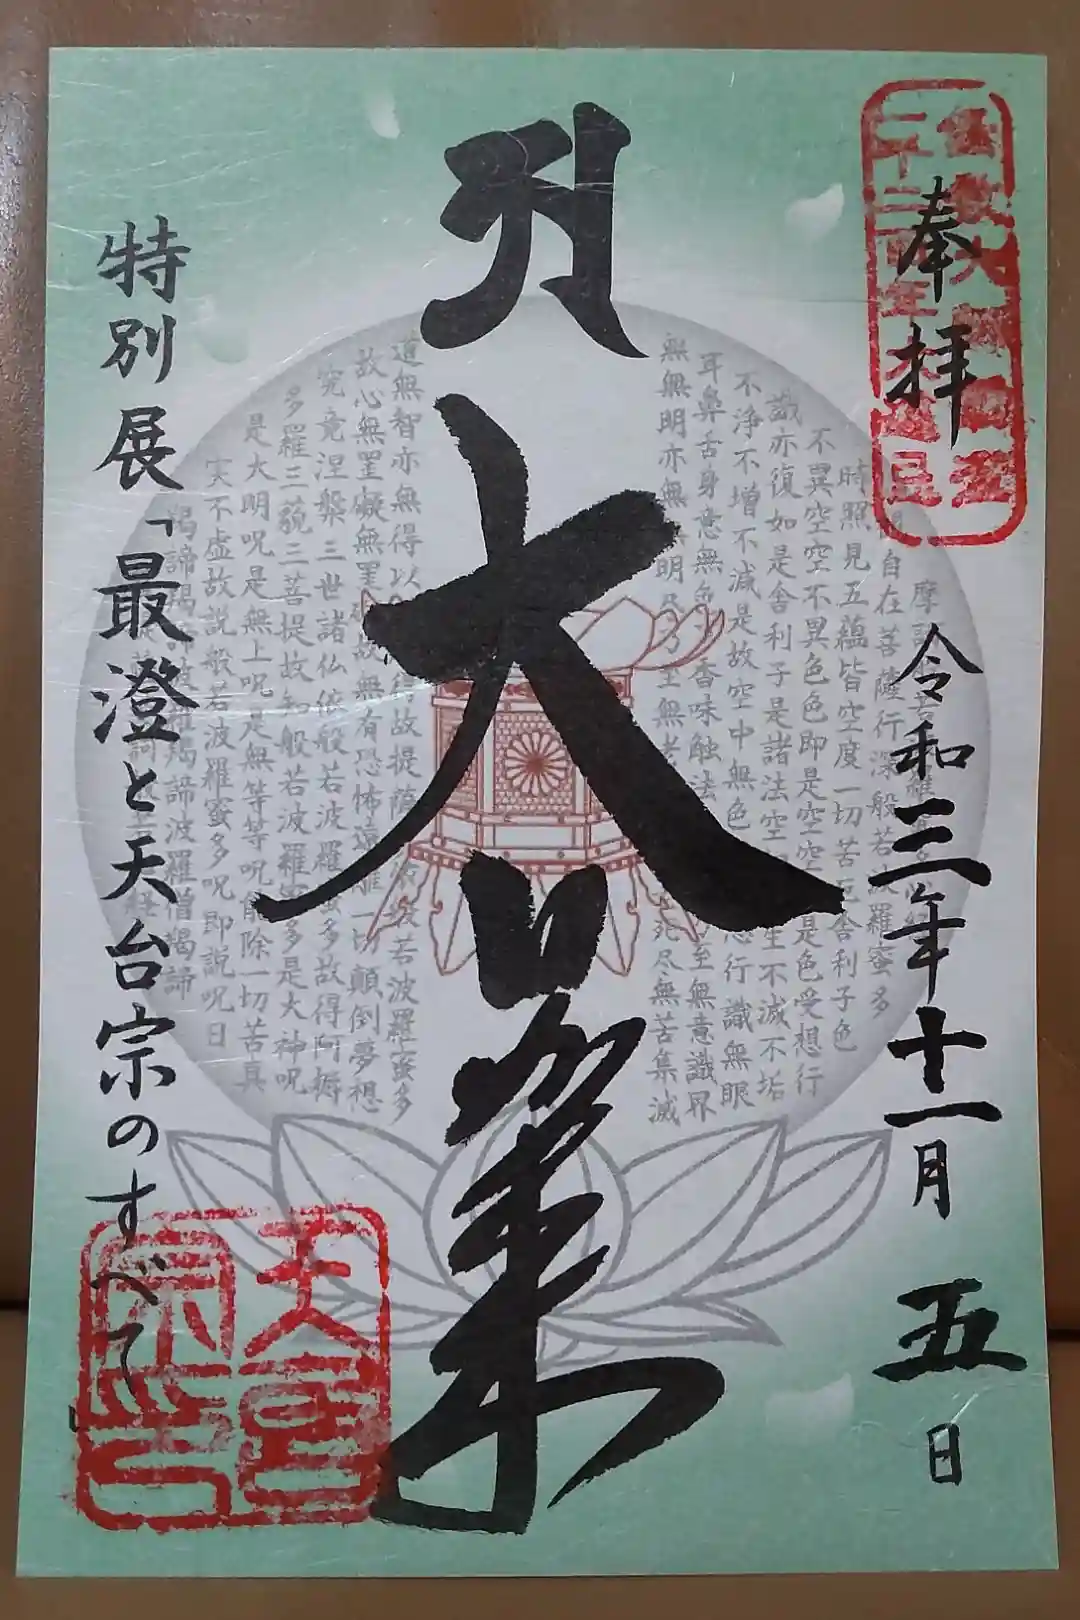 奉拝
令和三年十一月 五日
大
特別展「最澄と天台宗のすべて」
天台宗印
自在菩薩行深般若波羅蜜多
時照見五蘊皆空度一切苦厄舎利子色
不異空空不異色色即是空空是色受想行
識亦復如是舎利子是諸法空生不滅不垢
不浄不増不減是故空中無色想行識無眼
耳鼻舌身意無色香味触法至無意識界
無無明亦無無明尽乃至無老死尽無苦集滅
道無智亦無得以得故提薩依般若波羅蜜多
故心無罣礙無罣礙故無有恐怖遠離一切顛倒夢想
究竟涅槃三世諸仏依般若波羅蜜多故得阿耨
多羅三藐三菩提故知般若波羅蜜多是大神呪
是大明呪是無上呪是無等等呪能除一切苦真
実不虚故説般若波羅蜜多呪即説呪曰
羯諦羯諦波羅羯諦波羅僧羯諦